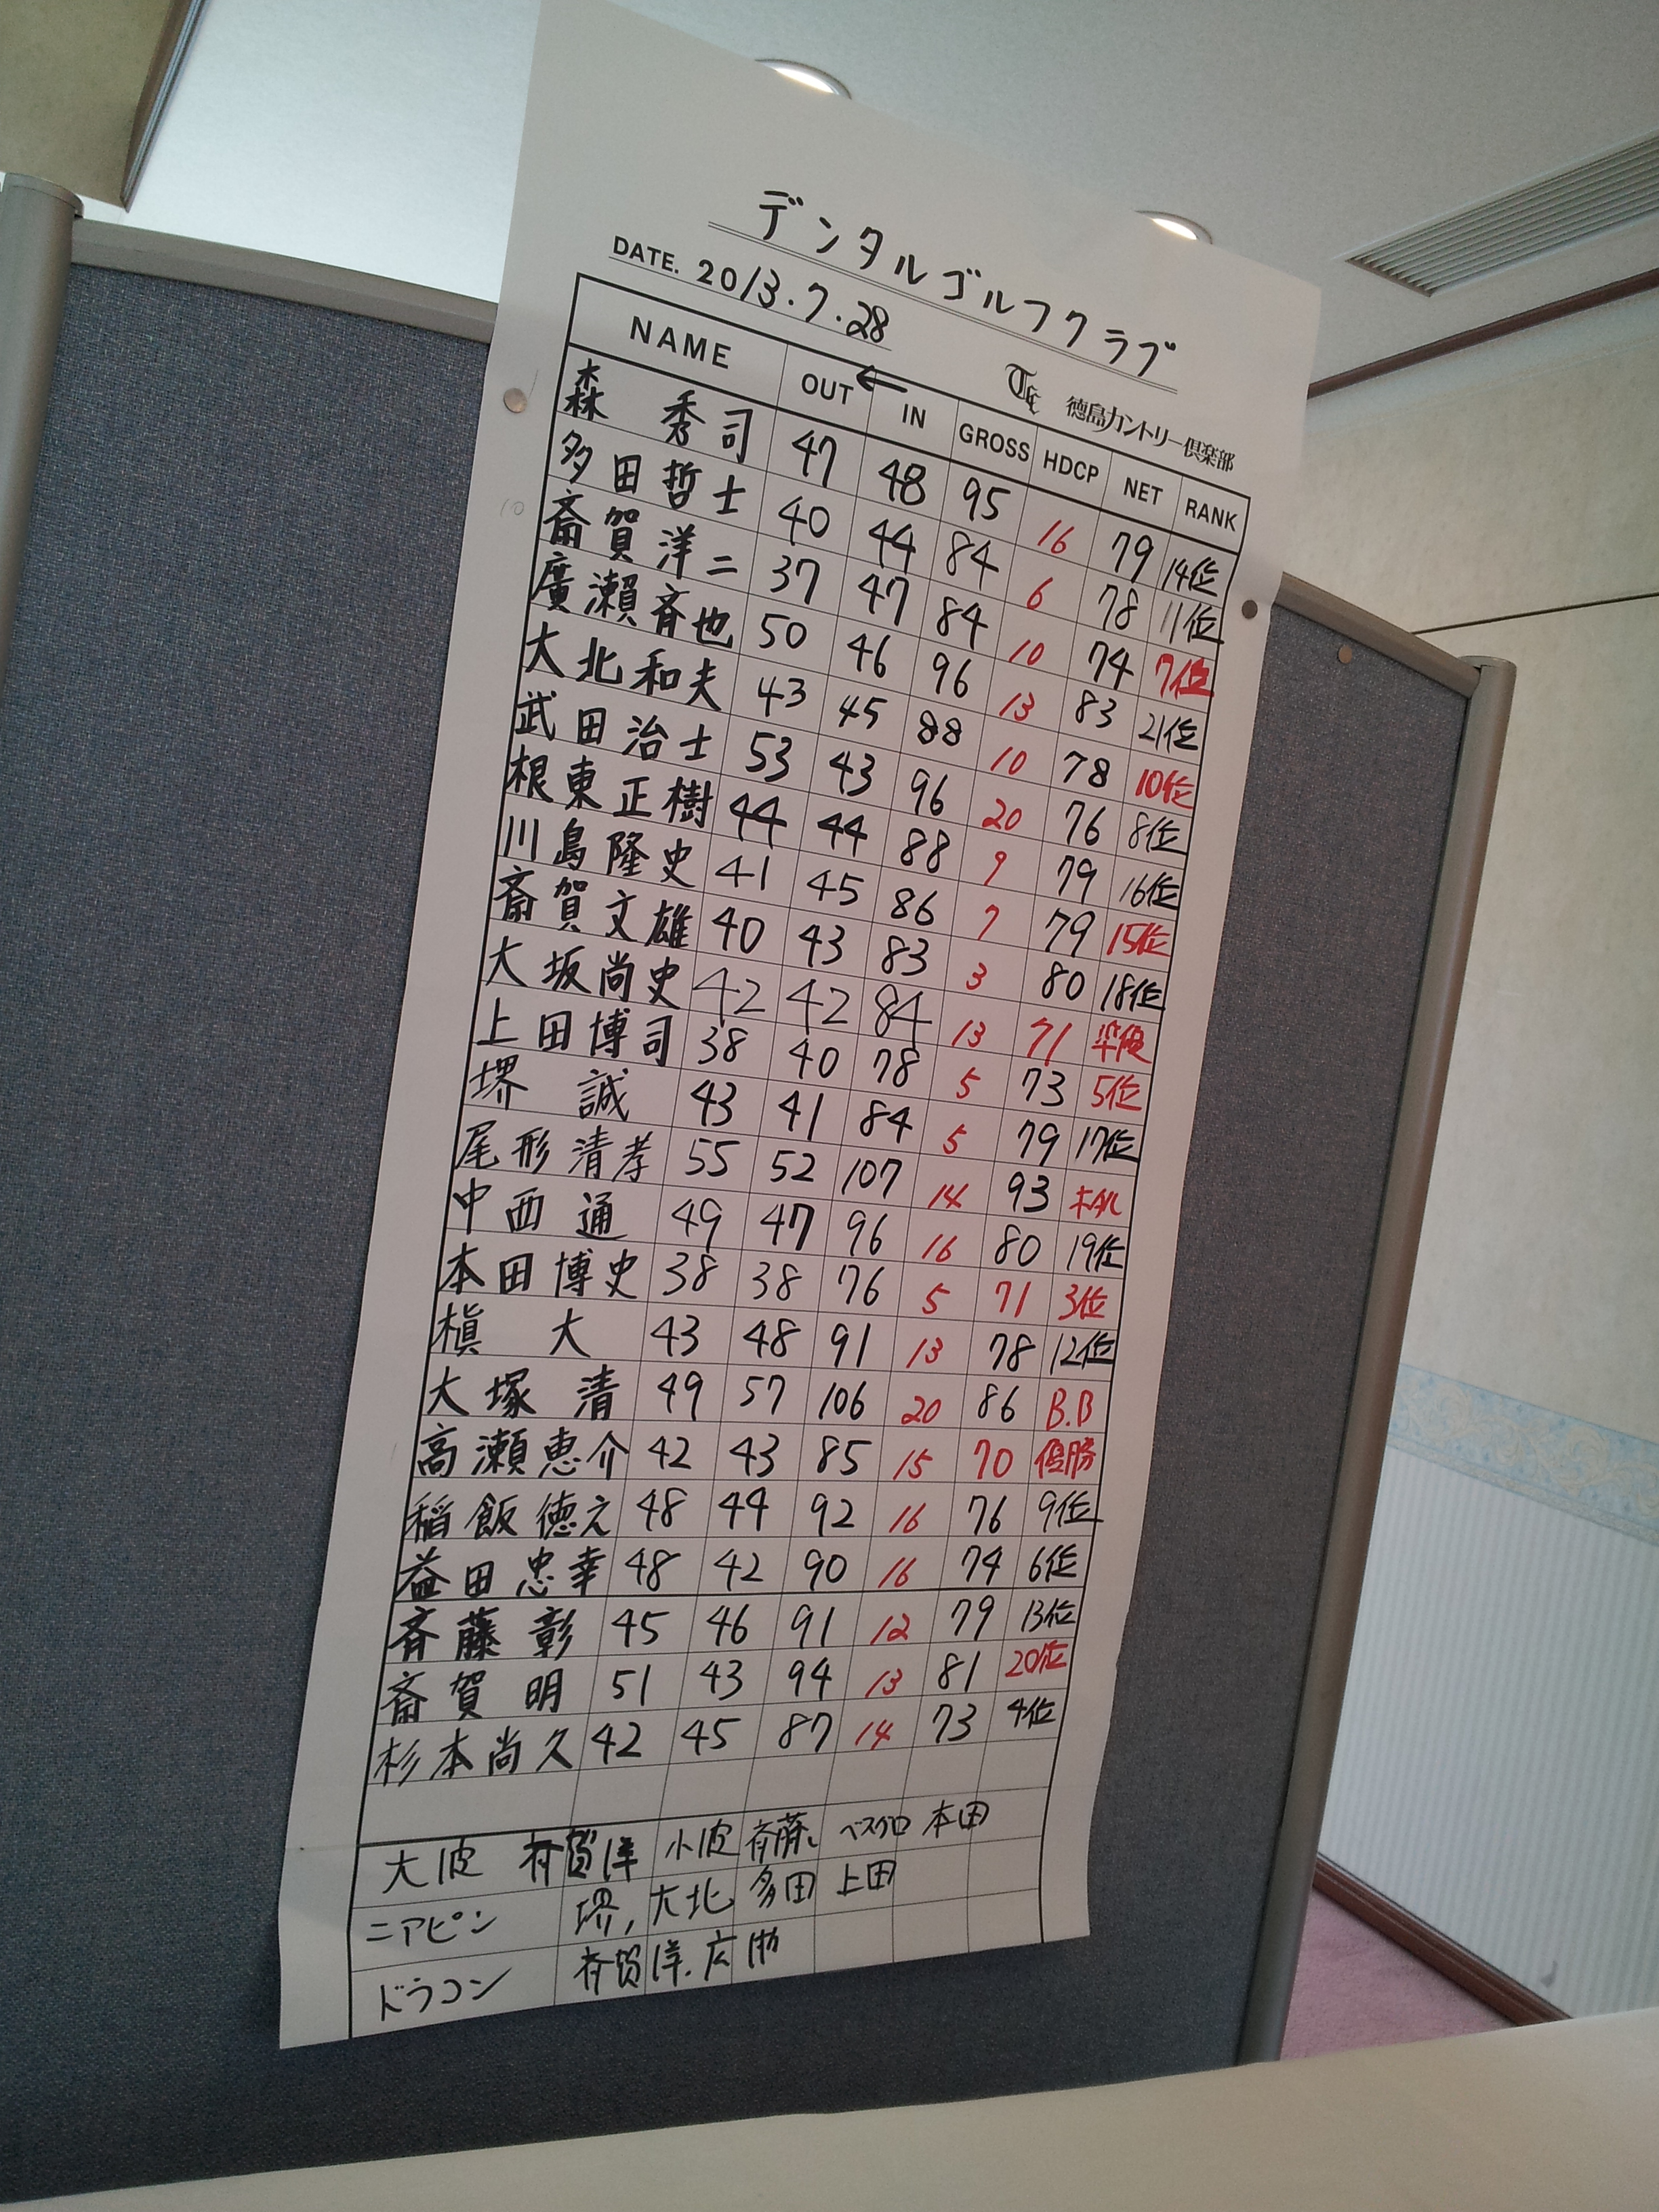 デンタルゴルフクラブ
DATE. 2013.7.28
徳島カントリー倶楽部
NAME OUT ← IN GROSS HDCP NET RANK
森 秀司 47 48 95 16 79 14位
多田哲士 40 44 84 6 78 11位
斎賀洋二 37 47 84 10 74 7位
廣瀬斉也 50 46 96 13 83 21位
大北和夫 43 45 88 10 78 10位
武田治士 53 43 96 20 76 8位
根東正樹 44 44 88 9 79 16位
川島隆史 41 45 86 7 79 15位
斎賀文雄 40 43 83 3 80 18位
大坂尚史 42 42 84 13 71 準優
上田博司 38 40 78 5 73 5位
堺 誠 43 41 84 5 79 17位
尾形清孝 55 52 107 14 93
中西 通 49 47 96 16 80 19位
本田博史 38 38 76 5 71 3位
槇 大 43 48 91 13 78 12位
大塚 清 49 57 106 20 86 B.B
高瀬恵介 42 43 85 15 70 優勝
稲飯徳之 48 44 92 16 76 9位
益田忠幸 48 42 90 16 74 6位
斉藤 彰 45 46 91 12 79 13位
斎賀 明 51 43 94 13 81 20位
杉本尚久 42 45 87 14 73 4位
大波 斉賀洋 小波 斉藤 ベスグロ 本田
ニアピン 堺, 大北 多田 上田
ドラコン 斉賀洋.